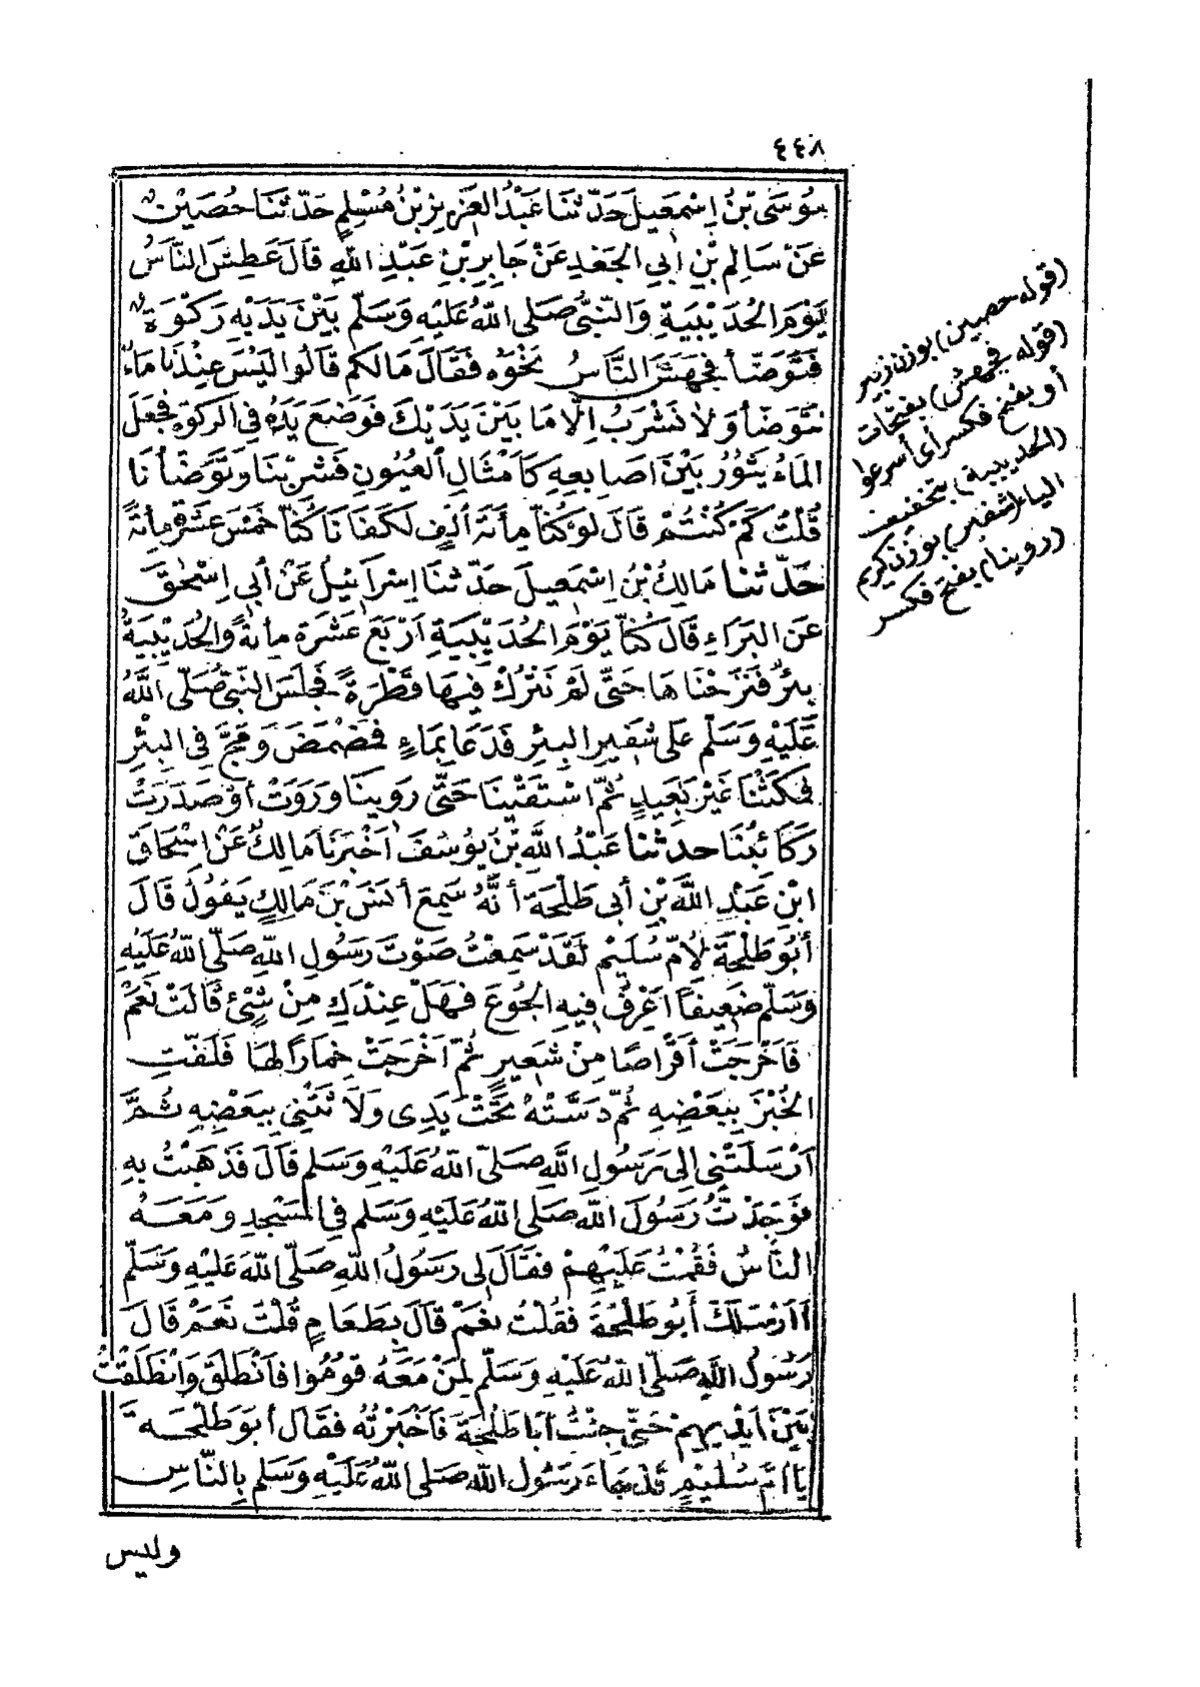 ٤٤٨
مُوسَى بْنُ إِسْمَعِيلَ حَدَّثَنَا عَبْدُ الْعَزِيزِ بْنُ مُسْلِمٍ حَدَّثَنَا حُصَيْنٌ
عَنْ سَالِمِ بْنِ أَبِي الجَعْدِ عَنْ جَابِرِ بْنِ عَبْدِ اللَّهِ قَالَ عَطِشَ النَّاسُ
يَوْمَ الحُدَيْبِيَةِ وَالنَّبِيُّ صَلَّى اللَّهُ عَلَيْهِ وَسَلَّمَ بَيْنَ يَدَيْهِ رَكْوَةٌ
فَتَوَضَّأَ فَجَهَشَ النَّاسُ نَحْوَهُ فَقَالَ مَالَكُمْ قَالُوا لَيْسَ عِنْدَنَا مَاءٌ
نَتَوَضَّأُ وَلَا نَشْرَبُ إِلَّا مَا بَيْنَ يَدَيْكَ فَوَضَعَ يَدَهُ فِي الرَّكْوَةِ فَجَعَلَ
المَاءُ يَثُورُ بَيْنَ أَصَابِعِهِ كَأَمْثَالِ العُيُونِ فَشَرِبْنَا وَتَوَضَّأْنَا
قُلْتُ كَمْ كُنْتُمْ قَالَ لَوْ كُنَّا مِائَةَ أَلْفٍ لَكَفَانَا كُنَّا خَمْسَ عَشْرَةَ مِائَةً
حَدَّثَنَا مَالِكُ بْنُ إِسْمَعِيلَ حَدَّثَنَا إِسْرَائِيلُ عَنْ أَبِي إِسْحَقَ
عَنِ البَرَاءِ قَالَ كُنَّا يَوْمَ الحُدَيْبِيَةِ أَرْبَعَ عَشَرَةَ مِائَةً وَالحُدَيْبِيَةُ
بِئْرٌ فَنَزَحْنَاهَا حَتَّى لَمْ نَتْرُكْ فِيهَا قَطْرَةً فَجَلَسَ النَّبِيُّ صَلَّى اللَّهُ
عَلَيْهِ وَسَلَّمَ عَلَى شَفِيرِ البِئْرِ فَدَعَا بِمَاءٍ فَمَضْمَضَ وَمَجَّ فِي البِئْرِ
فَمَكَثْنَا غَيْرَ بَعِيدٍ ثُمَّ اسْتَقَيْنَا حَتَّى رَوِينَا وَرَوَتْ أَوْ صَدَرَتْ
رَكَائِبُنَا حَدَّثَنَا عَبْدُ اللَّهِ بْنُ يُوسُفَ أَخْبَرَنَا مَالِكٌ عَنْ إِسْحَاقَ
ابْنِ عَبْدِ اللَّهِ بْنِ أَبِي طَلْحَةَ أَنَّهُ سَمِعَ أَنَسَ بْنَ مَالِكٍ يَقُولُ قَالَ
أَبُو طَلْحَةَ لِأُمِّ سُلَيْمٍ لَقَدْ سَمِعْتُ صَوْتَ رَسُولِ اللَّهِ صَلَّى اللَّهُ عَلَيْهِ
وَسَلَّمَ ضَعِيفًا أَعْرِفُ فِيهِ الجُوعَ فَهَلْ عِنْدَكِ مِنْ شَيْءٍ قَالَتْ نَعَمْ
فَأَخْرَجَتْ أَقْرَاصًا مِنْ شَعِيرٍ ثُمَّ أَخْرَجَتْ خِمَارًا لَهَا فَلَفَّتِ
الخُبْزَ بِبَعْضِهِ ثُمَّ دَسَّتْهُ تَحْتَ يَدِي وَلَاثَتْنِي بِبَعْضِهِ ثُمَّ
أَرْسَلَتْنِي إِلَى رَسُولِ اللَّهِ صَلَّى اللَّهُ عَلَيْهِ وَسَلَّمَ قَالَ فَذَهَبْتُ بِهِ
فَوَجَدْتُ رَسُولَ اللَّهِ صَلَّى اللَّهُ عَلَيْهِ وَسَلَّمَ فِي المَسْجِدِ وَمَعَهُ
النَّاسُ فَقُمْتُ عَلَيْهِمْ فَقَالَ لِي رَسُولُ اللَّهِ صَلَّى اللَّهُ عَلَيْهِ وَسَلَّمَ
أَأَرْسَلَكَ أَبُو طَلْحَةَ فَقُلْتُ نَعَمْ قَالَ بِطَعَامٍ قُلْتُ نَعَمْ قَالَ
رَسُولُ اللَّهِ صَلَّى اللَّهُ عَلَيْهِ وَسَلَّمَ لِمَنْ مَعَهُ قُومُوا فَانْطَلَقَ وَانْطَلَقْتُ
بَيْنَ أَيْدِيهِمْ حَتَّى جِئْتُ أَبَا طَلْحَةَ فَأَخْبَرْتُهُ فَقَالَ أَبُو طَلْحَةَ
يَا أُمَّ سُلَيْمٍ قَدْ جَاءَ رَسُولُ اللَّهِ صَلَّى اللَّهُ عَلَيْهِ وَسَلَّمَ بِالنَّاسِ
وليس
(قوله حصين) بوزن زبير
(قوله فجهش) بفتحات
أو بفتح فكسر أى أسرعوا
(الحديبية) بتخفيف
الياء (شفير) بوزن كريم
(روينا) بفتح فكسر